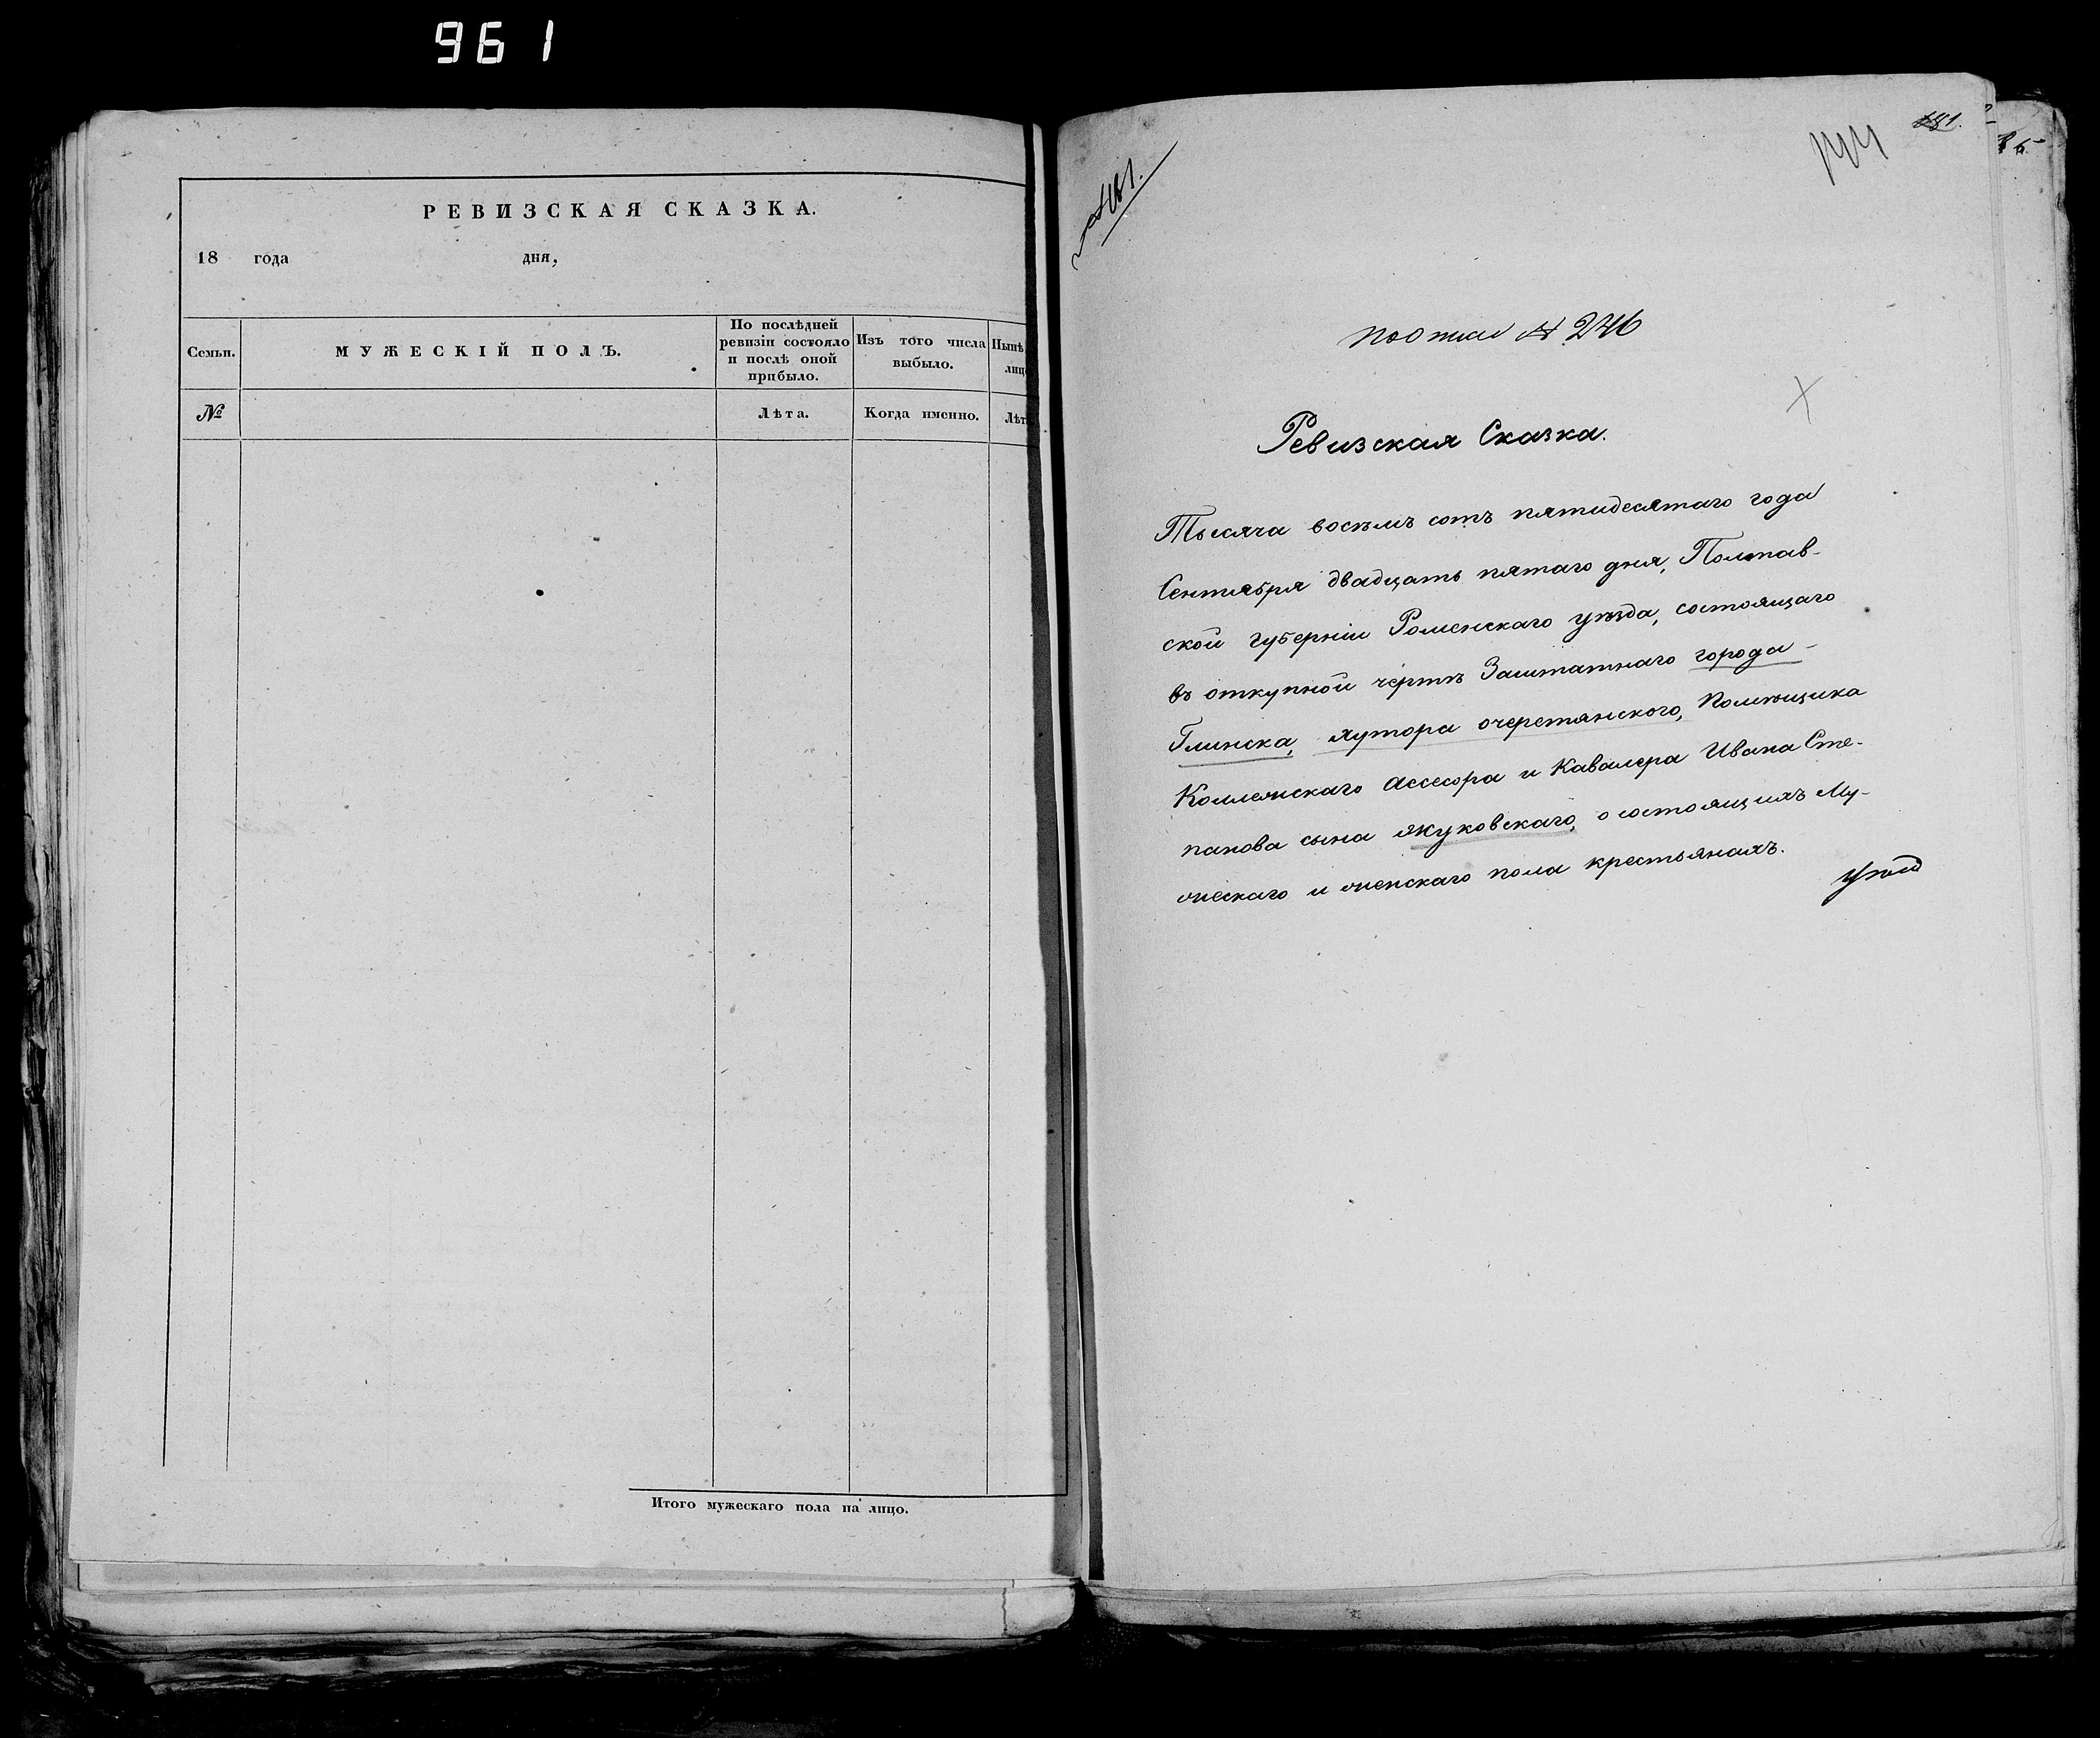 961
РЕВИЗСКАЯ СКАЗКА.
18 года дня,
Семьи.
МУЖЕСКІЙ ПОЛЪ.
По послѣдней
ревизіи состояло
и послѣ оной
прибыло.
Изъ того числа
выбыло.
Нынѣ
лиц
№
Лѣта.
Когда именно.
Лѣт
Итого мужескаго пола на лицо.
181.
№ 246
Ревизская Сказка.
Тысяча восѣмъ сотъ пятидесятаго года
Сентября двадцать пятаго дня, Полтав-
ской губерніи Роменскаго уѣзда, состоящаго
въ откупной чертѣ Заштатнаго города
Глинска, хутора очеретянского, Помѣщика
Коллежскаго Ассесора и Кавалера Ивана Сте-
панова сына Жуковскаго, о состоящихъ Му-
жескаго и женскаго пола крестьянахъ.